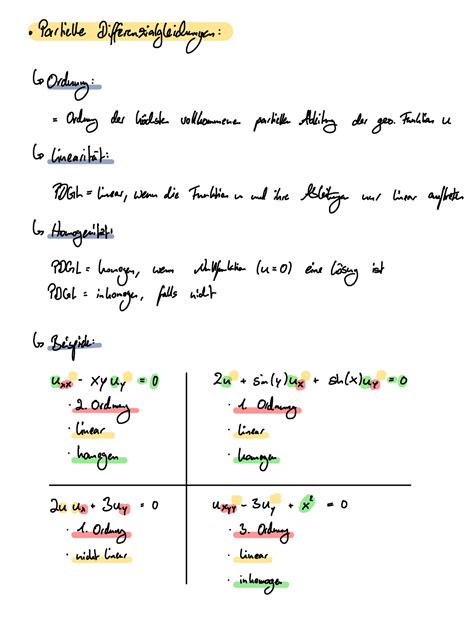 • Partielle Differenzialgleichungen:
↳ Ordnung:
= Ordnung der höchsten vorkommenen partiellen Ableitung der ges. Funktion u
↳ Linearität:
PDGL = linear, wenn die Funktion u und ihre Ableitungen nur linear auftreten
↳ Homogenität:
PDGL = homogen, wenn Nullfunktion (u=0) eine Lösung ist
PDGL = inhomogen, falls nicht
↳ Beispiele:
u_xx - xy u_y = 0
· 2. Ordnung
· linear
· homogen
2u + sin(y)u_x + sh(x)u_y = 0
· 1. Ordnung
· linear
· homogen
2u u_x + 3u_y = 0
· 1. Ordnung
· nicht linear
u_xyy - 3u_y + x² = 0
· 3. Ordnung
· linear
· inhomogen